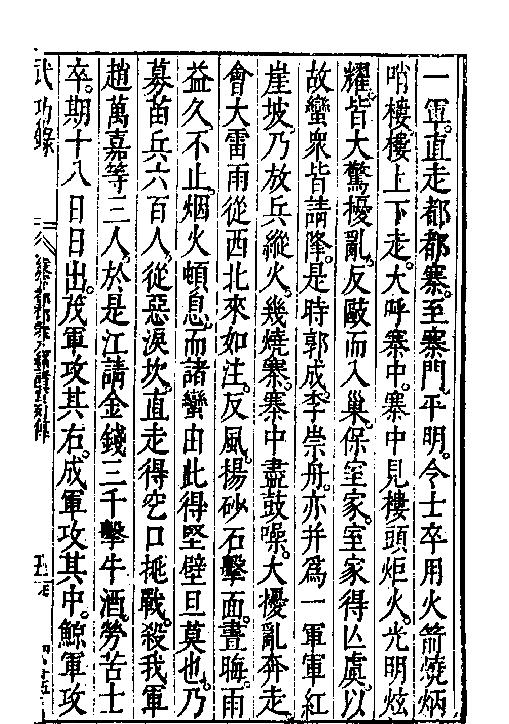 一軍。直走都都寨。至寨門。平明。令士卒用火箭燒炳
哨樓。樓上下走。大呼寨中。寨中見樓頭炬火。光明炫
耀。皆大驚擾亂。反敺而入巢。保室家。室家得亾虞。以
故蠻衆皆請降。是時郭成。李崇舟。亦并爲一軍軍紅
崖坡。乃放兵縱火。幾燒寨。寨中盡鼓噪。大擾亂奔走。
會大雷雨從西北來如注。反風。揚砂石擊面。晝晦。雨
益久。不止。烟火頓息。而諸蠻由此得堅壁旦莫也。乃
募苗兵六百人。從惡淚坎。直走得穵口挑戰。殺我軍
趙萬嘉等三人。於是江請金錢三千擊牛酒。勞苦士
卒。期十八日日出。茂軍攻其右。成軍攻其中。鯨軍攻
武功錄